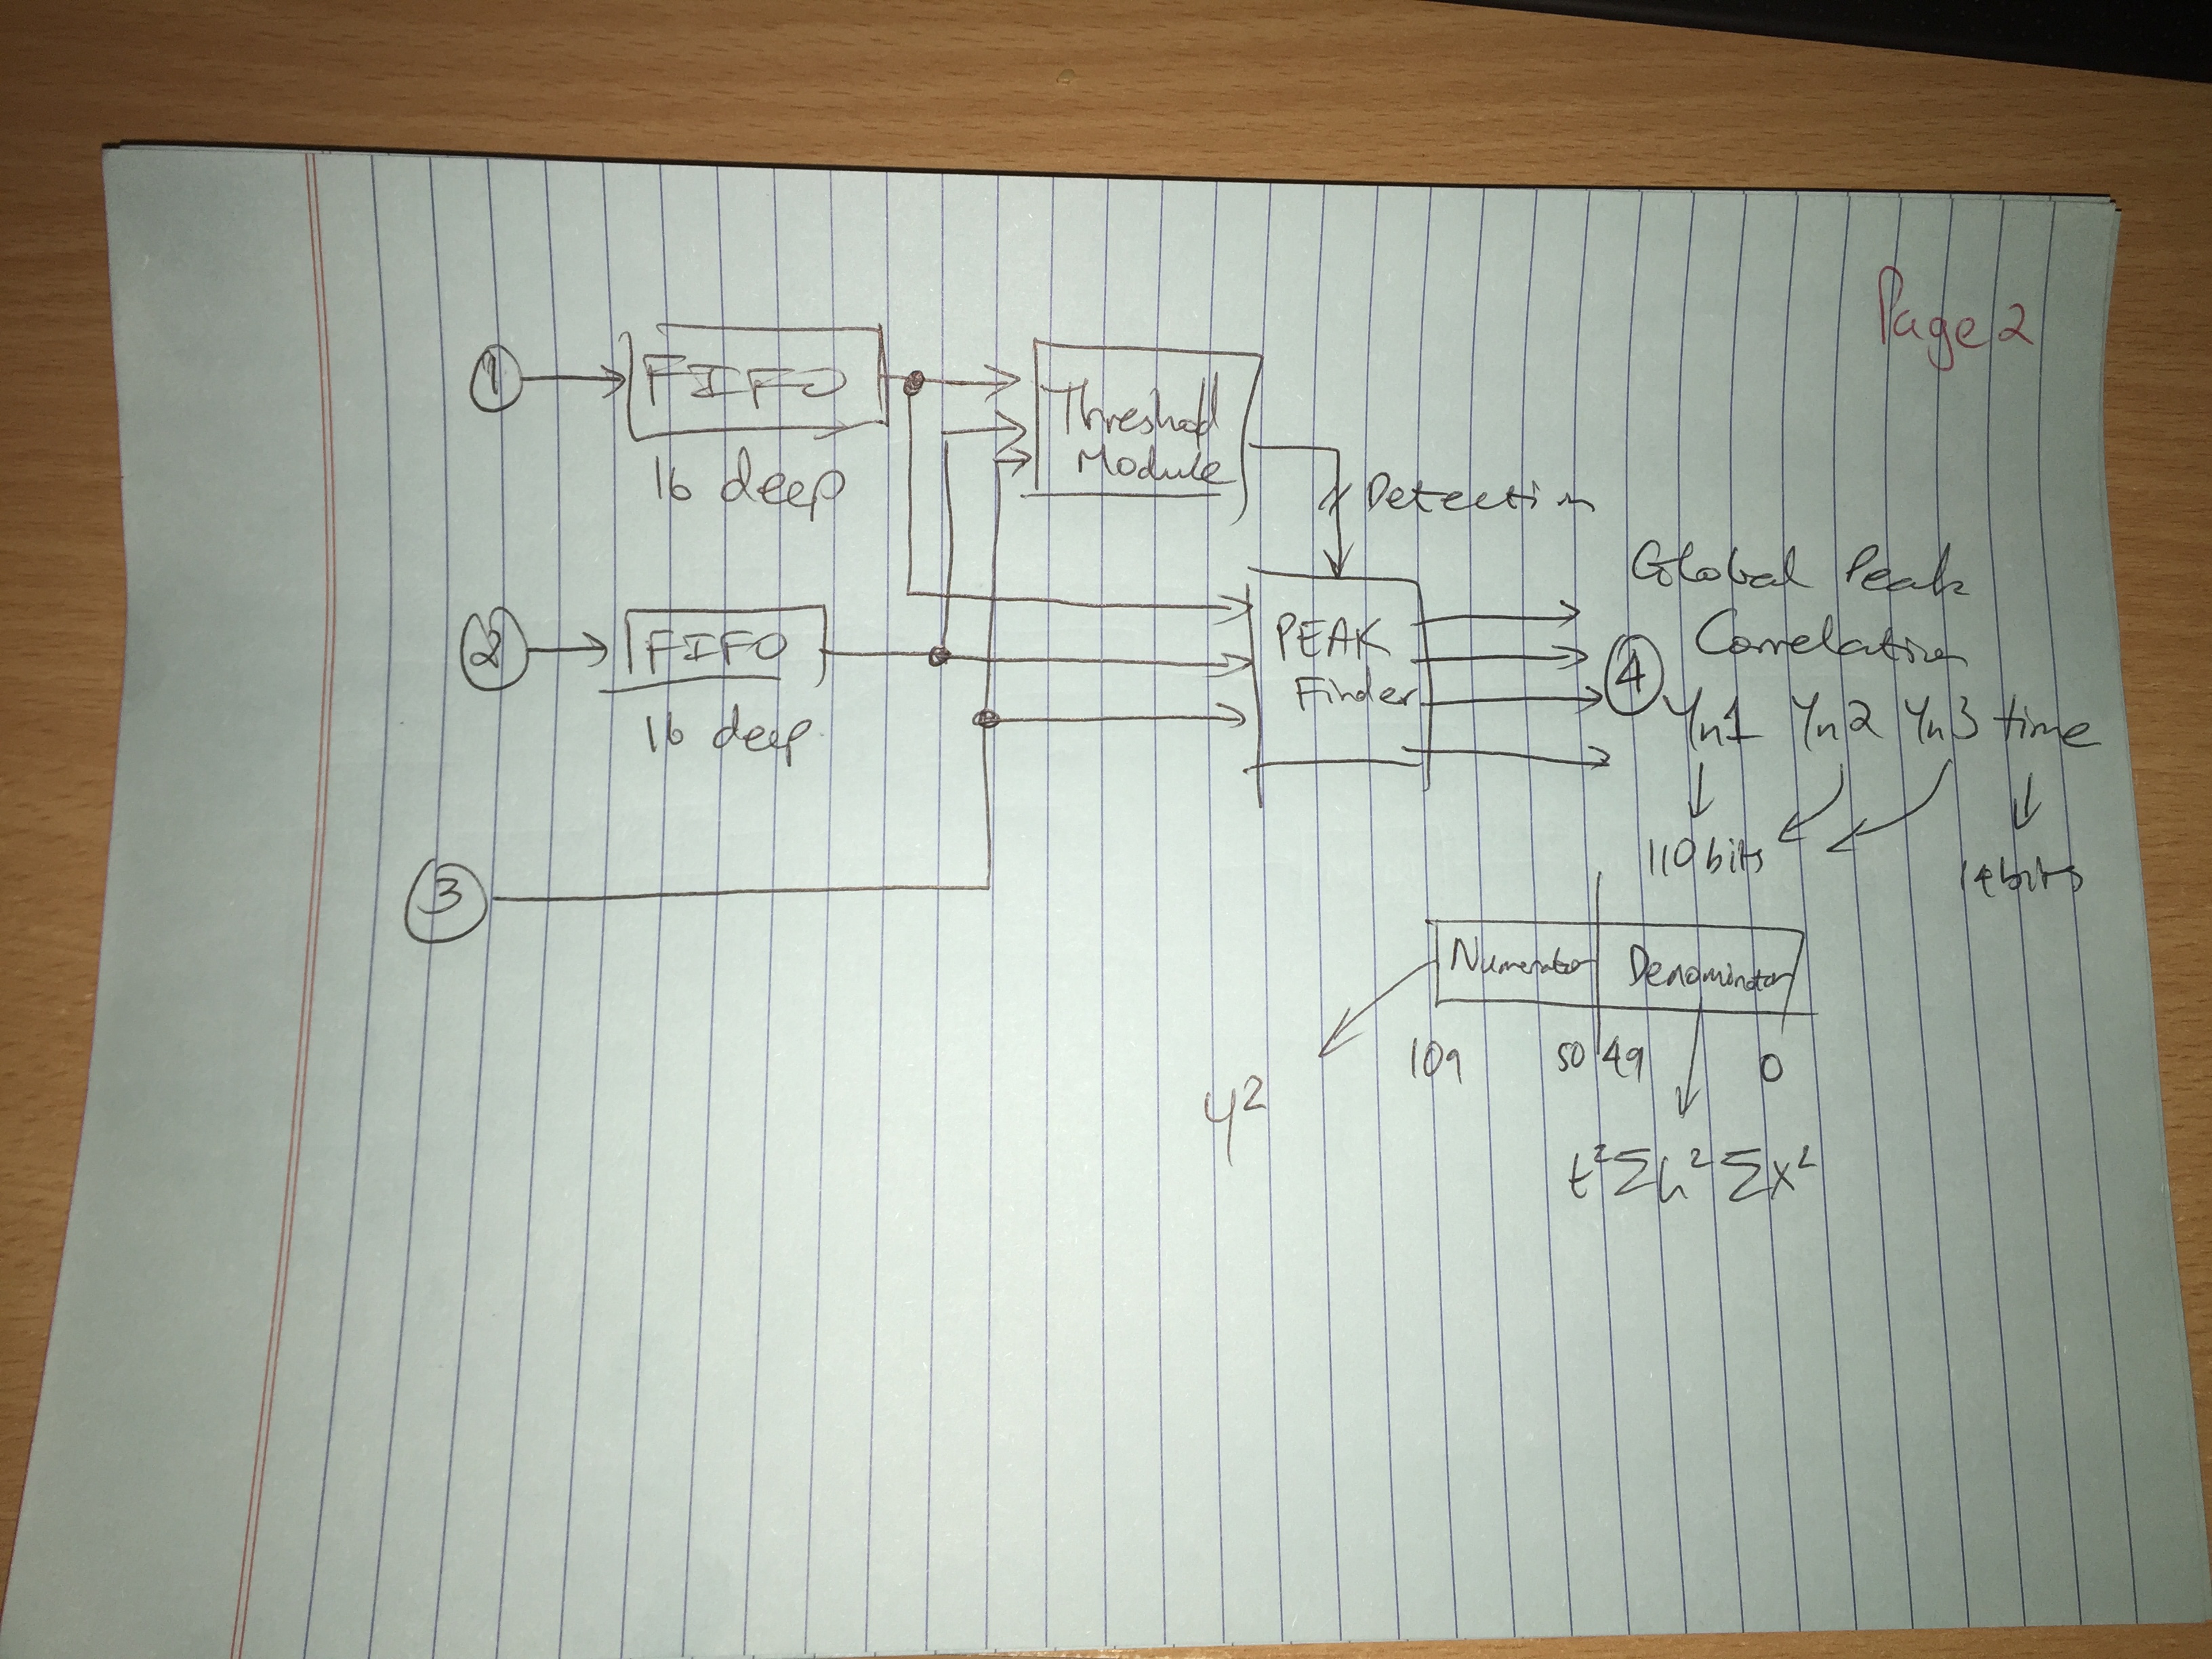 Page 2
1 FIFO
16 deep
Threshold
Module
Detection
2 FIFO
16 deep.
PEAK
Finder
Global Peak
Correlation
4 Yn1 Yn2 Yn3 time
3
110bits 14bits
Numerator Denominator
109 50 49 0
y2
t²Σh²Σx²